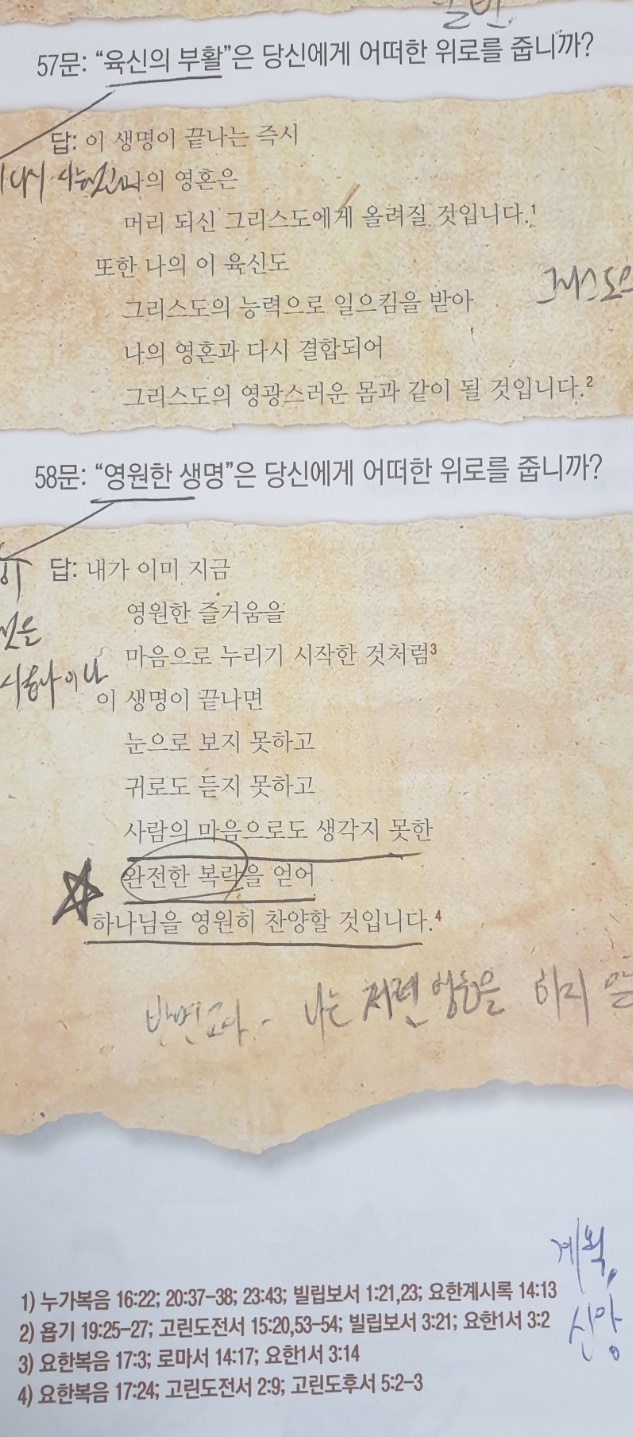 57문: “육신의 부활”은 당신에게 어떠한 위로를 줍니까?
답: 이 생명이 끝나는 즉시
나의 영혼은
머리 되신 그리스도에게 올려질 것입니다.1
또한 나의 이 육신도
그리스도의 능력으로 일으킴을 받아
나의 영혼과 다시 결합되어
그리스도의 영광스러운 몸과 같이 될 것입니다.2
58문: “영원한 생명”은 당신에게 어떠한 위로를 줍니까?
답: 내가 이미 지금
영원한 즐거움을
마음으로 누리기 시작한 것처럼3
이 생명이 끝나면
눈으로 보지 못하고
귀로도 듣지 못하고
사람의 마음으로도 생각지 못한
완전한 복락을 얻어
하나님을 영원히 찬양할 것입니다.4
나는 저런 하지
계획,
신앙
1) 누가복음 16:22; 20:37-38; 23:43; 빌립보서 1:21,23; 요한계시록 14:13
2) 욥기 19:25-27; 고린도전서 15:20,53-54; 빌립보서 3:21; 요한1서 3:2
3) 요한복음 17:3; 로마서 14:17; 요한1서 3:14
4) 요한복음 17:24; 고린도전서 2:9; 고린도후서 5:2-3